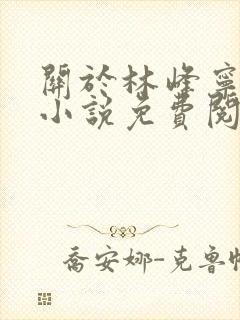 關於林峰寧
小說免費閱
喬安娜-克魯